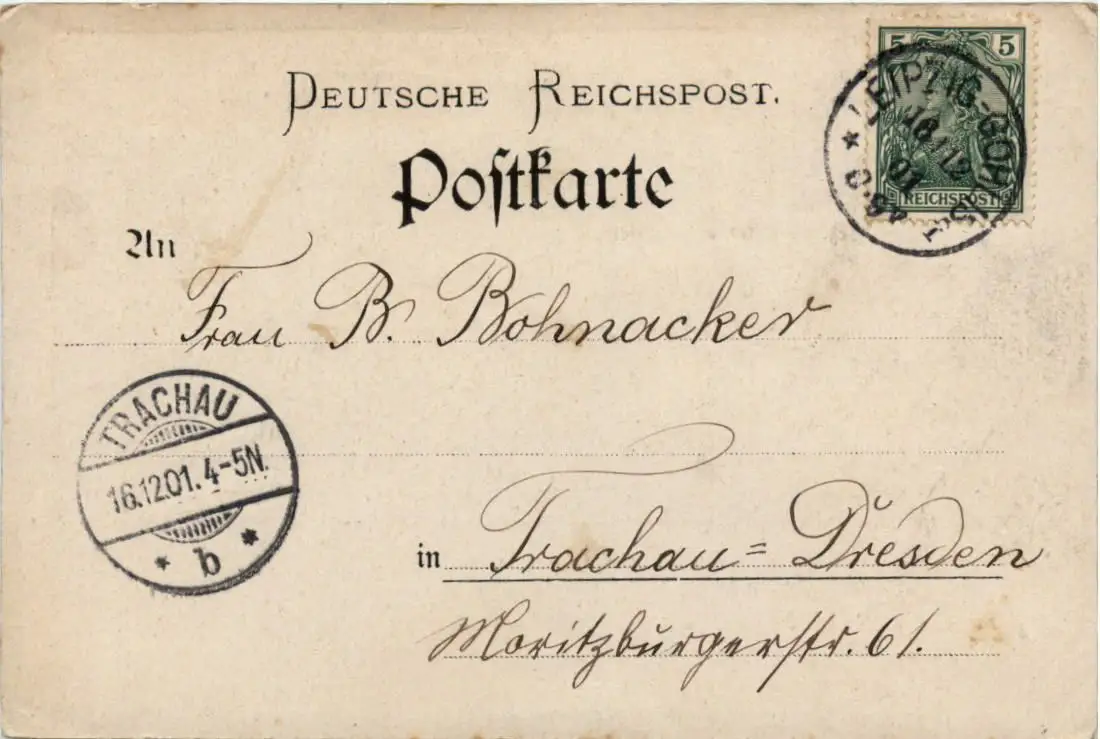 DEUTSCHE REICHSPOST.
5 5
REICHSPOST
LEIPZIG-GOHLIS
12
01
Postkarte
An
Frau B. Bohnacker
TRACHAU
16.12.01. 4-5N.
* b *
in Trachau = Dresden
Moritzburgerstr. 61.